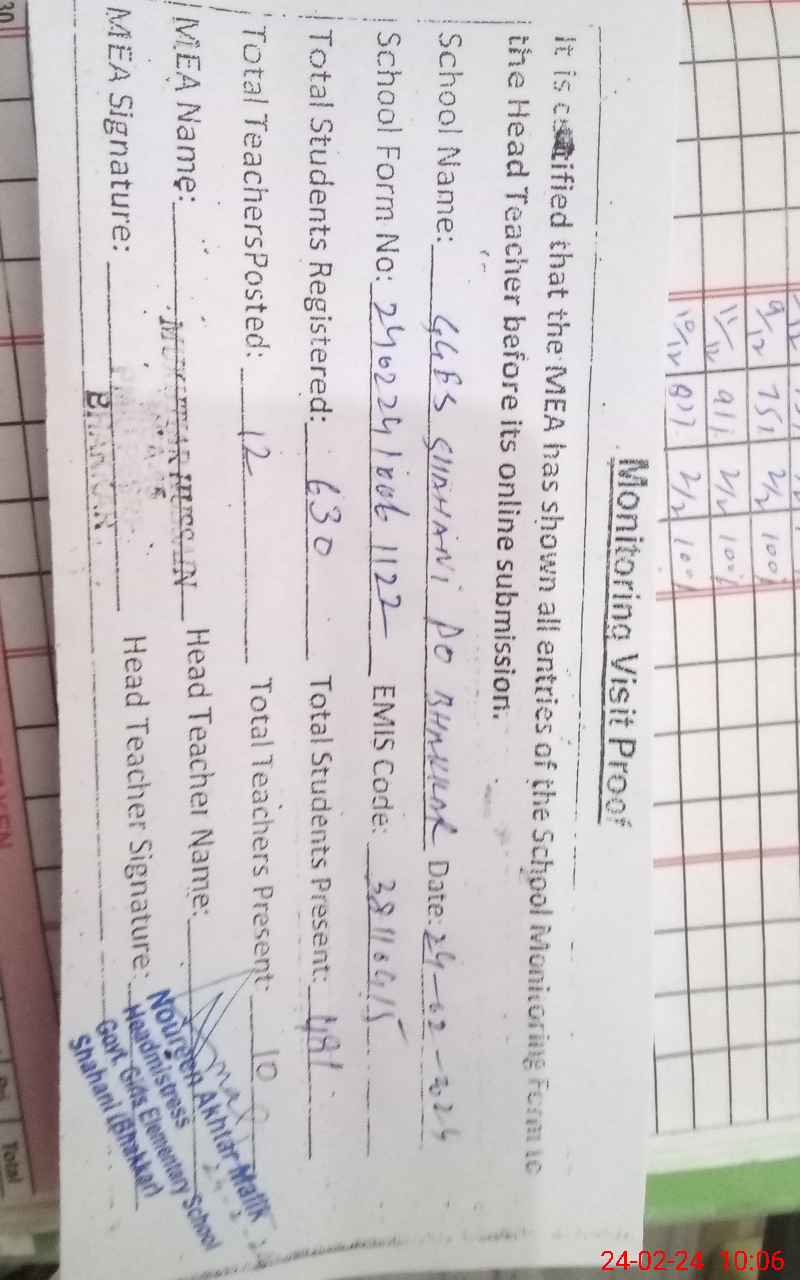 Monitoring Visit Proof
It is certified that the MEA has shown all entries of the School Monitoring Form to
the Head Teacher before its online submission.
School Name: GGES SHAHANI PO BHAKKAR Date: 24-02-2024
School Form No: 24022410061122 EMIS Code: 38110415
Total Students Registered: 630 Total Students Present: 481
Total TeachersPosted: 12 Total Teachers Present: 10
MEA Name: MUKHTIAR HUSSAIN Head Teacher Name:
MEA Signature: Head Teacher Signature:
BHAKKAR
Noureen Akhtar Malik
Headmistress
Govt. Girls Elementary School
Shahani (Bhakkar)
9/12 75% 2/2 100%
11/12 91% 2/2 100%
12/12 87% 2/2 100%
30
TAKEN
Total
24-02-24 10:06